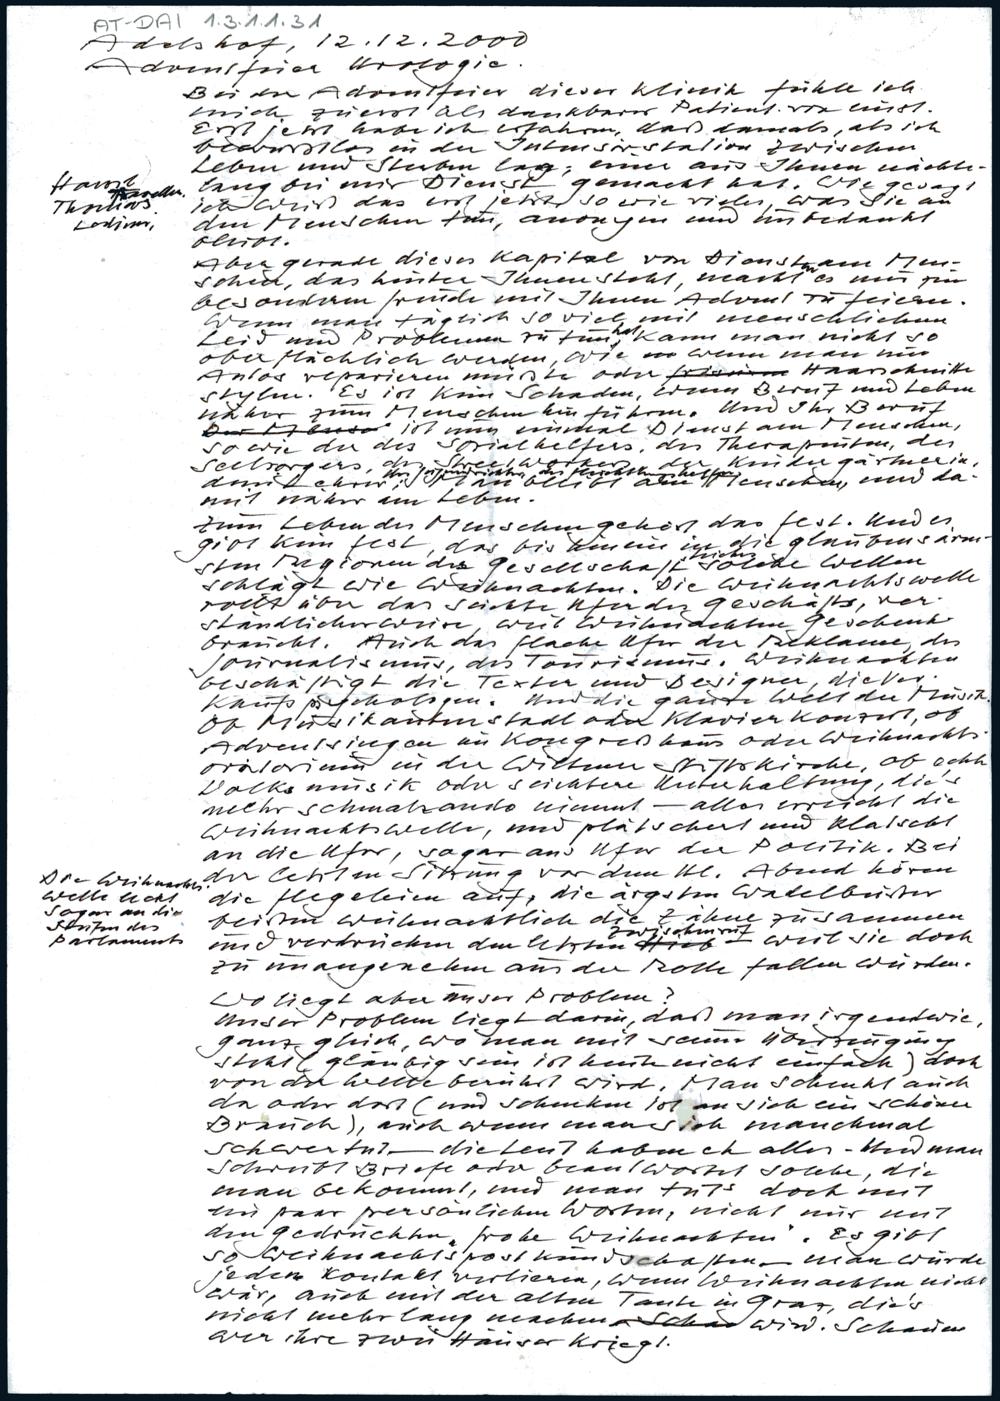 AT-DAI 1.3.1.1.31
Adelshof, 12.12.2000
Adventfeier Urologie.
Bei der Adventfeier dieser Klinik fühle ich
mich zuerst als dankbarer Patient von einst.
Erst jetzt habe ich erfahren, daß damals, als ich
bewusstlos in der Intensivstation zwischen
Leben und Sterben lag, einer aus Ihnen nächte-
lang bei mir Dienst gemacht hat. Wie gesagt
ich weiß das erst jetzt, so wie vieles, was Sie an
den Menschen tun, anonym und unbedankt
bleibt.
Thomas
Aber gerade dieses Kapital von Dienst am Men-
schen, das hinter Ihnen steht, macht es mir zur
besonderen Freude mit Ihnen Advent zu feiern.
Wenn man täglich so viel mit menschlichem
Leid und Problemen zu tun hat, kann man nicht so
oberflächlich werden, wie wenn man nur
Autos reparieren müßte oder Haarschnitte
stylen. Es ist kein Schaden, wenn Beruf und Leben
näher zum Menschen hinführen. Und Ihr Beruf
ist nun einmal Dienst am Menschen,
so wie der des Sozialhelfers, des Therapeuten, des
Seelsorgers, des Streetworkers, der Kindergärtnerin,
des Flüchtlingshelfers
man bleibt am Menschen, und da-
mit näher am Leben.
Zum Leben des Menschen gehört das Fest. Und es
gibt kein Fest, das bis hinein in die glaubensärm-
sten Regionen der Gesellschaft solche Wellen
schlägt wie Weihnachten. Die Weihnachtswelle
rollt über das seichte Ufer des Geschäfts, ver-
ständlicherweise, weil Weihnachten Geschenke
braucht. Auch das flache Ufer der Reklame, des
Journalismus, des Tourismus. Weihnachten
beschäftigt die Texter und Designer, die Ver-
kaufspsychologen. Und die ganze Welt der Musik.
Ob Musikantenstadl oder Klavierkonzert, ob
Adventsingen im Kongreßhaus oder Weihnachts-
oratorium in der Wiltener Stiftskirche, ob echte
Volksmusik oder seichtere Unterhaltung, die's
mehr schmalzando nimmt – alles erreicht die
Weihnachtswelle, und plätschert und klatscht
an die Ufer, sogar ans Ufer der Politik. Bei
der letzten Sitzung vor dem Hl. Abend hören
die Flegeleien auf, die ärgsten Wadelbeisser
beissen weihnachtlich die Zähne zusammen
und verdrücken den letzten Zwischenruf – weil sie doch
zu unangenehm aus der Rolle fallen würden.
Die Weihnachts-
welle leckt
sogar an die
Stufen des
Parlaments
Wo liegt aber unser Problem?
Unser Problem liegt darin, daß man irgendwie,
ganz gleich, wo man mit seiner Überzeugung
steht (gläubig sein ist heute nicht einfach) doch
von der Welle berührt wird. Man schenkt auch
da oder dort (und schenken ist an sich ein schöner
Brauch), auch wenn man sich manchmal
schwertut – die Leut haben eh alles – Und man
schreibt Briefe oder beantwortet solche, die
man bekommt, und man tut's doch mit
ein paar persönlichen Worten, nicht nur mit
dem gedruckten „frohe Weihnachten". Es gibt
so Weihnachtspostkundschaften – man würde
jeden Kontakt verlieren, wenn Weihnachten nicht
wär, auch mit der alten Tante in Graz, die's
nicht mehr lang machen wird. Schauen
wer ihre zwei Häuser kriegt.